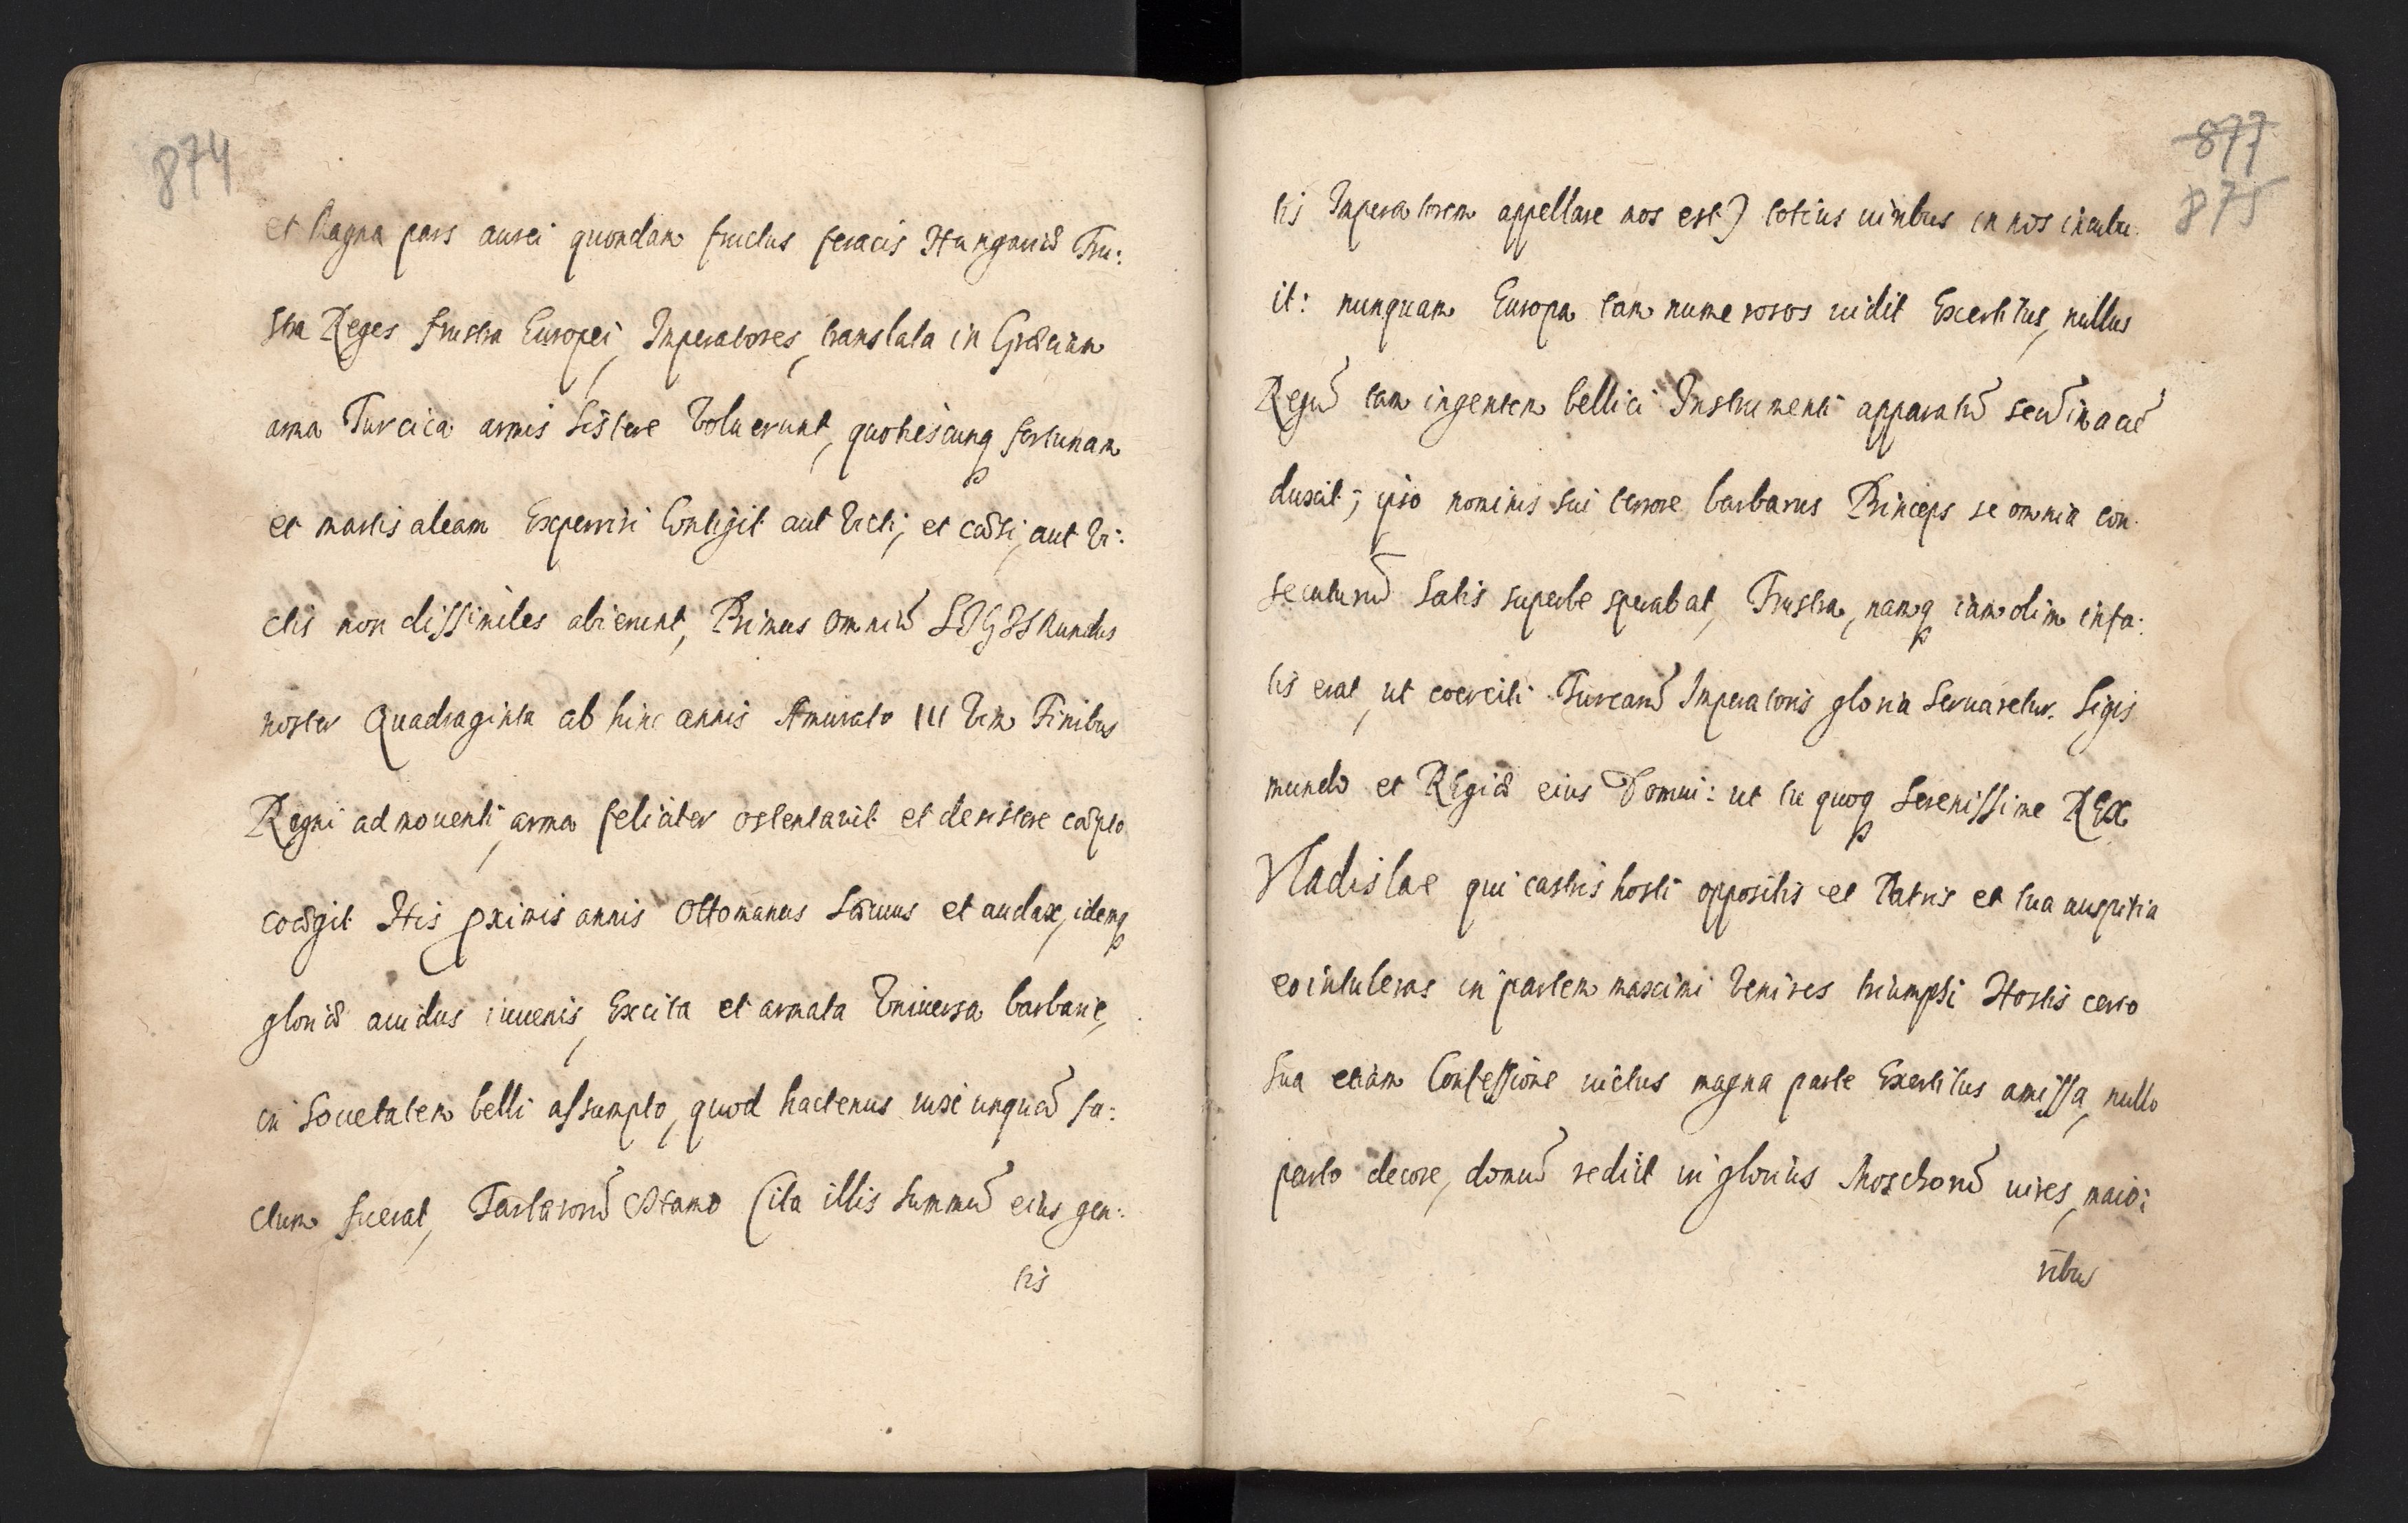 874
et Magna pars aurei quondam fructus feracis Hungariæ Fru:
stra Reges frustra Europei, Imperatores, translata in Græciam
arma Turcica armis sistere Voluerunt, quotiescunq fortunam
et martis aleam Experiri Contigit aut Victi, et cæsi, aut Vi:
ctis non dissimiles abierunt, Primus omniũ SIGISMundus
noster Quadraginta ab hinc annis Amurato III Vim Finibus
Regni admouenti, arma feliciter ostentauit et desistere cæpto
coægit His ꝓximis annis Ottomanus Sæuus et audax, idemq
gloriæ auidus iuuenis, Excita et armata Vniuersa barbarie,
in Societatem belli assumpto, quod hactenus uix unquã fa:
ctum fuerat, Tartarorũ Hamo (ita illis summũ eius gen:
tis
877
875
tis Imperatorem appellare mos est) totius uiribus in nos incubu:
it: nunquam Europa tam numerosos uidit Exercitus, nullus
Regũ tam ingentem bellici Instrumenti apparatũ secũ in aciẽ
duxit; ipso nominis sui terrore barbarus Princeps se omnia con:
secuturũ Satis superbe sperabat, Frustra, namq iam olim in fa:
tis erat, ut coerciti Turcarũ Imperatoris gloria Seruaretur. Sigis
mundo et Regiæ eius Domui: ut tu quoq Serenissime REx
Vladislae qui castris hosti oppositis et Patris et tua auspitia
eo intuleras in partem maximi Venires triumphi Hostis certo
Sua etiam Confessione uictus magna parte Exercitus amissa, nullo
parto decore, domũ redijt in glorius Moschorũ uires, maio:
ribus